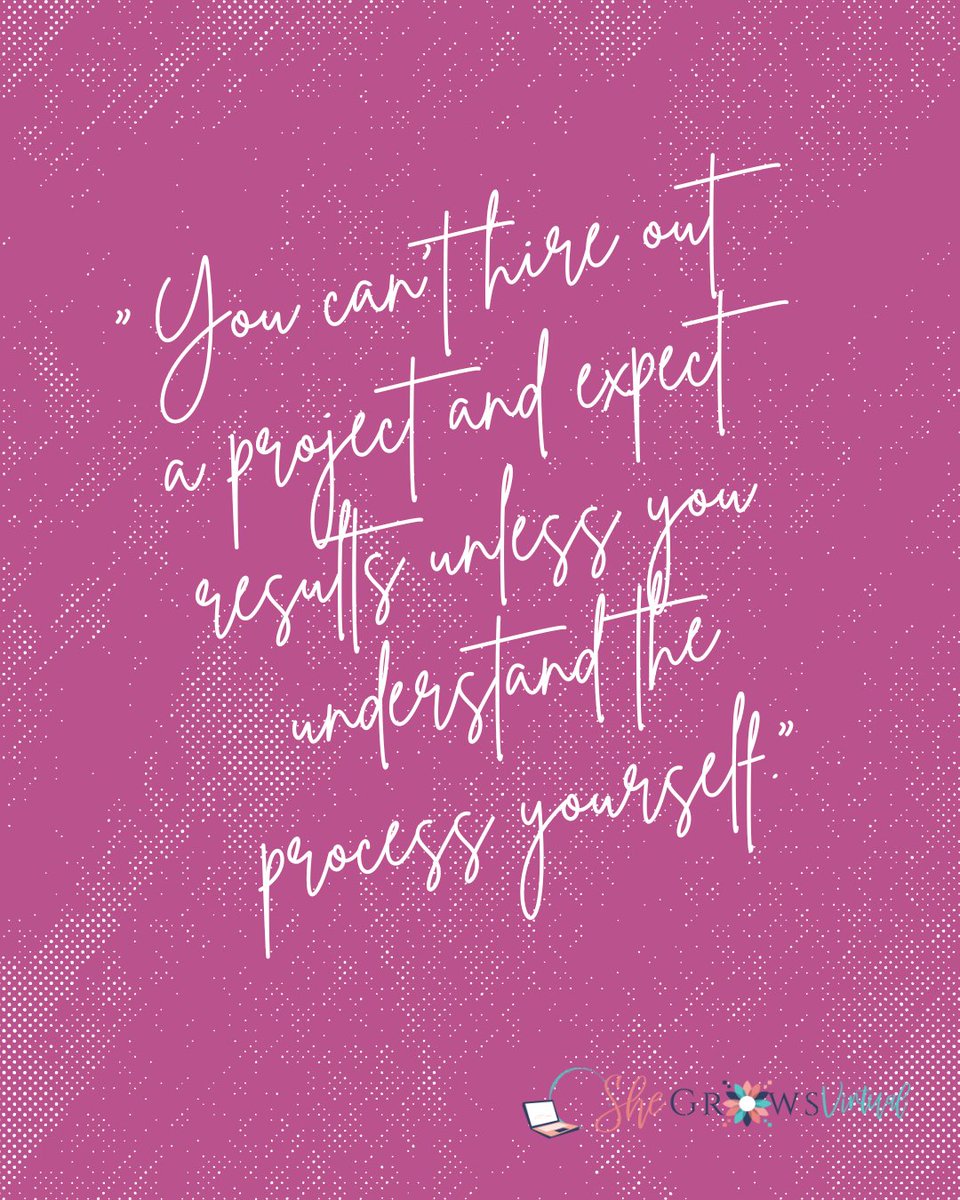 ” You can’t hire out
a project and expect
results unless you
understand the
process yourself.”
She GROWS Virtual